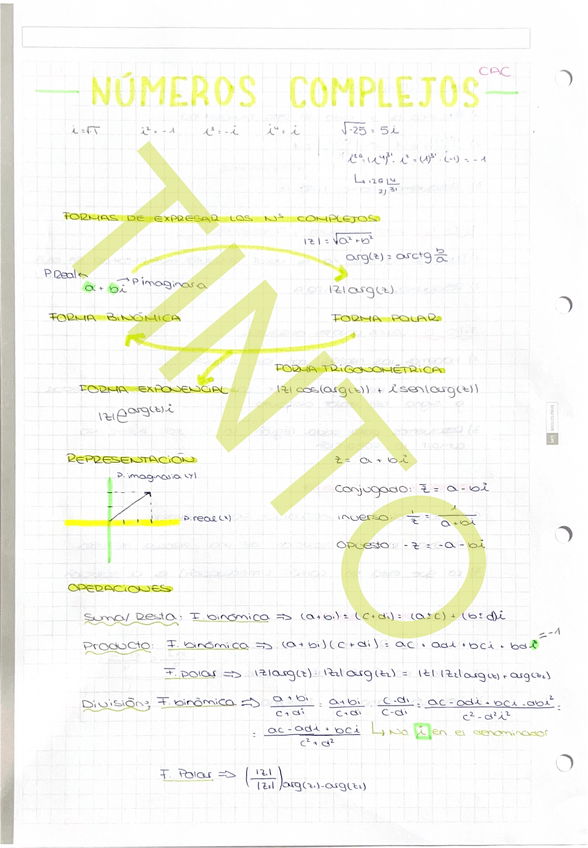 CAC
NÚMEROS COMPLEJOS
i=√-1 i²=-1 i³=-i i⁴=i √-25=5i
↳ 126 |4
FORMAS DE EXPRESAR LOS Nº COMPLEJOS
|z|=√a²+b²
arg(z)=arctg b/a
P Real ← a+bi → P imaginaria |z|arg(z)
FORMA BINÓMICA FORMA POLAR
FORMA TRIGONOMÉTRICA
FORMA EXPONENCIAL |z|cos(arg(z)) + i sen(arg(z))
|z|e^arg(z)·i
REPRESENTACIÓN z = a + bi
P. imaginaria (y)
Conjugado: z̄ = a-bi
P. real (x)
inverso: 1/z = 1/a+bi
Opuesto: -z = -a-bi
OPERACIONES
Suma/Resta: F. binómica ⇒ (a+bi)±(c+di)=(a±c)+(b±d)i
Producto: F. binómica ⇒ (a+bi)(c+di) = ac + adi + bci + bdi² =-1
F. polar ⇒ |z|arg(z)·|z₁|arg(z₁) = |z|·|z₁|arg(z)+arg(z₁)
División: F. binómica ⇒ a+bi/c+di = a+bi/c+di · c-di/c-di = ac-adi+bci-dbi²/c²-d²i² =
= ac-adi+bci/c²+d² ↳ No i en el denominador
F. Polar ⇒ (|z|/|z₁|)arg(z)-arg(z₁)
TINTO